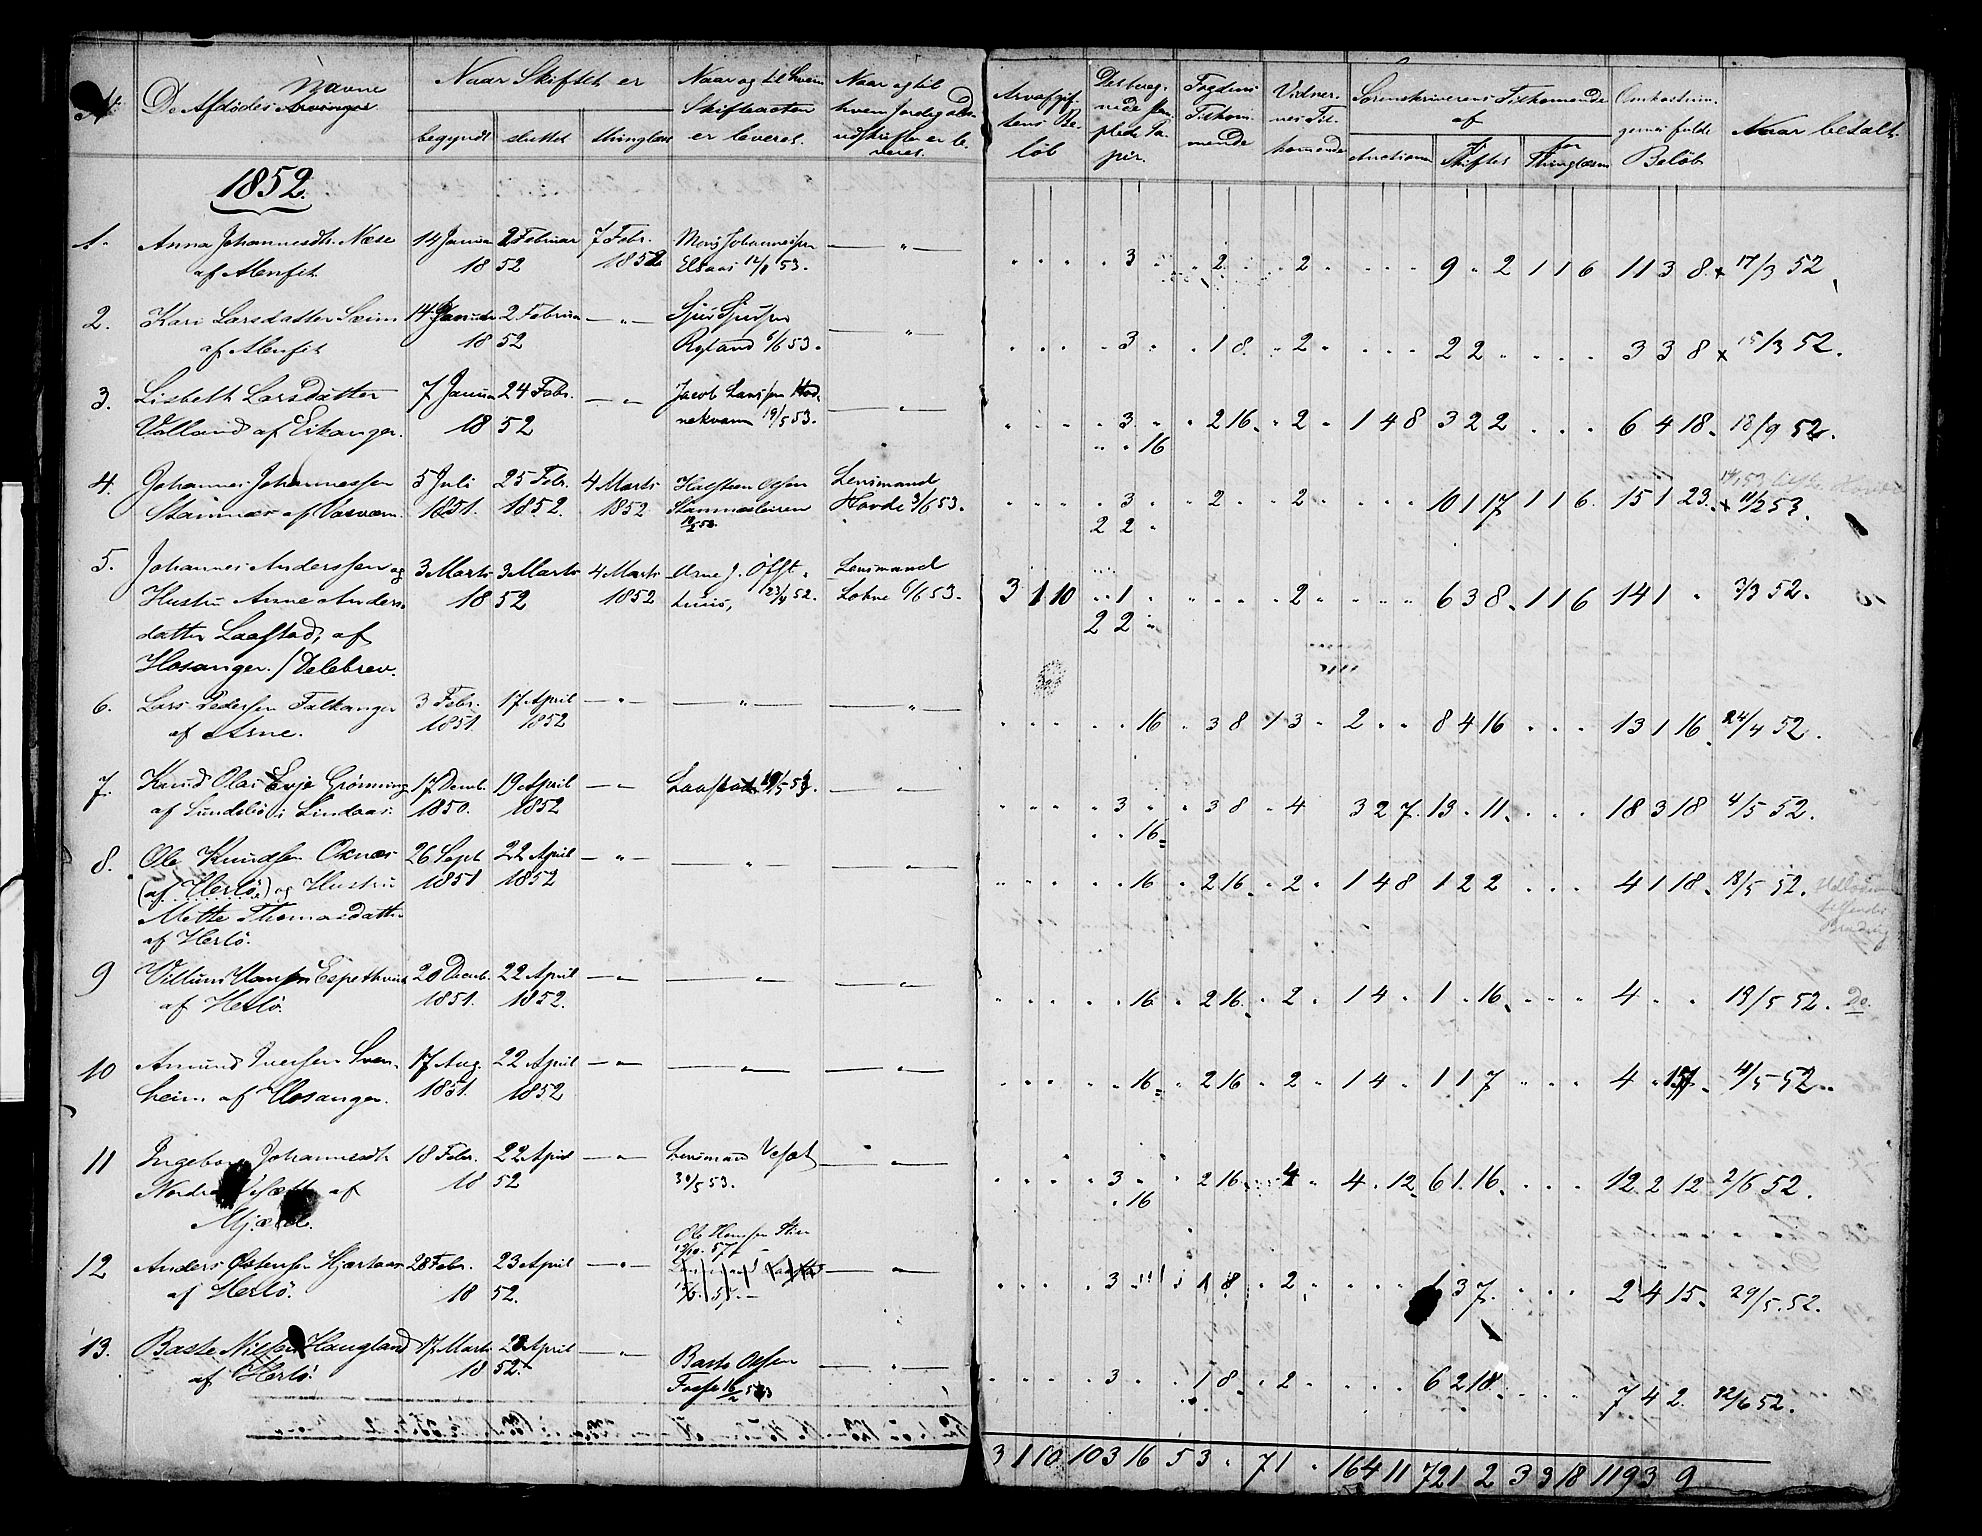 No.
De Afdødes Arvinger Navne
Naar Skiftet er
begyndt
sluttet
thinglæst
Naar og til hvem
Skifteacten
er leveret.
Naar og til
hvem Jordegods-
udskriften er le-
veret.
Arveafgif-
tens Be-
löb
Fogdens
Tilkom-
mende
Vidner-
nes Til-
kommende
Sorenskriverens Tilkommende
af
Auctioner
af
Skifter
for
Thinglæsn
Omkostnin-
gernes fulde
Belöb
Naar betalt.
1852.
1. Anna Johannesdtr. Næse 14 Januar 2 Februar 7 Febr. Mons Johannessen — " —
af Alenfit 1852 1852 Elsaas 12/8 53.
" " " " 3 " " 2 " " 2 " " " " 9 " 2 1 1 6 11 3 8 x 17/3 52
2. Kari Larsdatter Seim 14 Januar 2 Februar — " — Sjur Sjursen — " —
af Alenfit 1852 Ryland 6/6 53.
" " " " 3 " " 1 8 " 2 " " " " 2 2 " " " " 3 3 8 x 15/3 52.
3. Lisbeth Larsdatter 7 Januar 24 Febr. — " — Jacob Larssen Hod- — " —
Valland af Eikanger. 1852 nekvam 19/5 53.
" " " " 3 " " 2 16 " 2 " 1 4 8 3 2 2 " " " 6 4 18 18/9 52.
" " 16
4. Johannes Johannessen 5 Juli 25 Febr. 4 Marts Halsteen Olsen Lensmand
Stamnæs af 1851. 1852. 1852 Stamnæsleiren Hovde 3/6 53.
" " " " 3 " " 2 " " 2 " " " " 10 1 17 1 1 6 15 1 23 x 11/2 53.
2 2 "
5. Johannes Anderssen og 3 Marts 3 Marts 4 Marts Arne J. Lensmand
Hustru Anne Anders- 1852 1852 23/4 52. Lohne 6/6 53.
datter Laastad, af
Hosanger. / Delebrev.
3 1 10 " 1 " " " " " 2 " " " " 6 3 8 1 1 6 14 1 " 3/3 52.
2 2 "
6. Lars Pedersen Falkanger 3 Febr. 17 April — " — — " — — " —
af Arne. 1851. 1852
" " " " " 16 " 3 8 1 3 " 2 " " 8 4 16 " " " 13 1 16 24/4 52.
7. Knud Olai Evje Grönning 17 Decmb. 19 April — " — Laastad — " —
af Sundsbö i Lindaas. 1850. 1852
" " " " 3 " " 3 8 " 4 3 2 7 13 " 11 " " " 18 3 18 4/5 52.
" " 16
8. Ole Knudsen Oxnæs 26 Sept 22 April — " — — " — — " —
(af Herlö.) og Hustru 1851 1852
Mette Thomasdatter
af Herlö.
" " " " " 16 " 2 16 " 2 " 1 4 8 1 2 2 " " " 4 1 18 18/5 52.
9 Villum Espethveit 20 Decmb. 22 April — " — — " — — " —
af Herlö. 1851. 1852.
" " " " " 16 " 2 16 " 2 " 1 4 " 1 " 16 " " " 4 " " 18/5 52. Do.
10 Amund Iversen Sven- 17 Aug. 22 April — " — — " — — " —
heim af Hosanger. 1851. 1852
" " " " " 16 " 2 16 " 2 " 1 4 " 1 1 7 " " " 4 " 11/5 52.
11 Ingeborg Johannesdtr. 18 Febr. 22 April — " — Lensmand — " —
Nordre af 1852 30/5 53.
Mjælde.
" " " " 3 " " 2 16 " 4 " 4 " 12 6 1 16 " " " 12 2 12 2/6 52.
" 16
12 Anders Östensen Hjertaas 28 Febr. 23 April — " — Ole Hansen — " —
af Herlö. 1852.
" " " " 3 " " 1 8 " 2 " " " " 1 3 7 " " " 2 4 15 29/5 52.
13. Baste Nilsen Haugland 17 Marts April — " — Baste Olsen — " —
af Herlö. 1852.
" " " " 3 " " 1 8 " 2 " " " " 6 2 18 " " " 7 4 2 52.
3 1 10 10 3 16 5 3 " 7 1 " 16 4 11 72 1 2 3 3 18 119 3 9